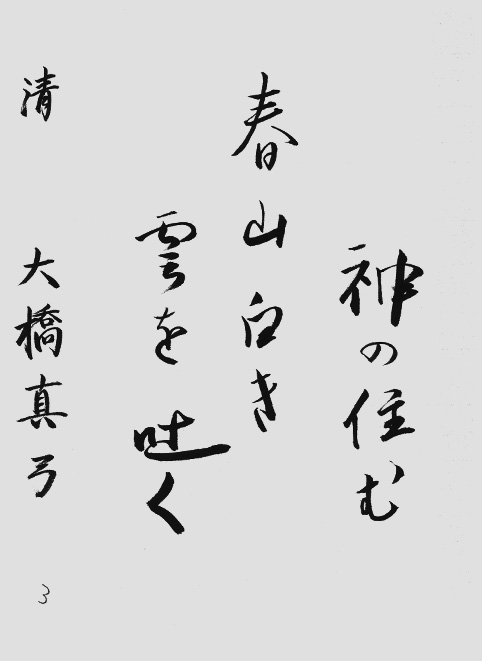 神の住む
春山白き
雲を吐く
清 大橋真弓
3